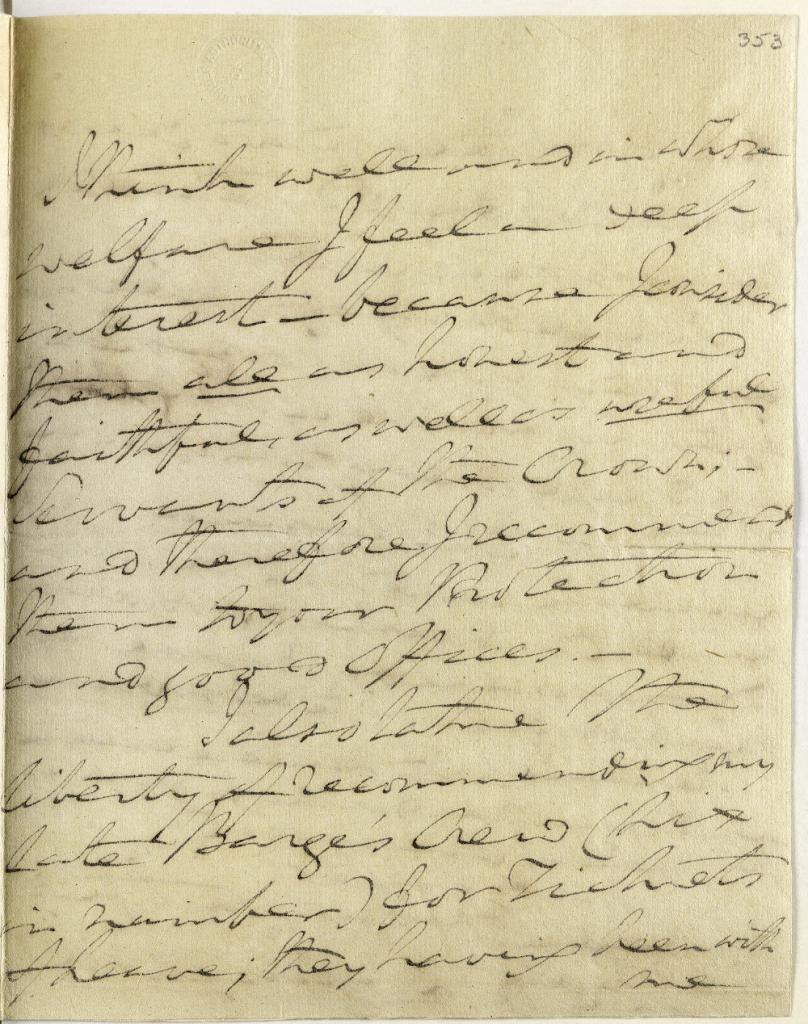 353
I think well and in whose
welfare I feel a deep
interest – because I consider
them all as honest and
faithful, as well as useful
Servants of the Crown; –
and therefore I recommend
them to your Protection
and good Offices. –
I also take the
liberty of recommending my
late Barge's Crew (six
in number) for Tickets
of leave; they having been with
me